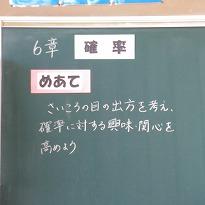 6章 確率
めあて
さいころの目の出方を考え、
確率に対する興味・関心を
高めよう